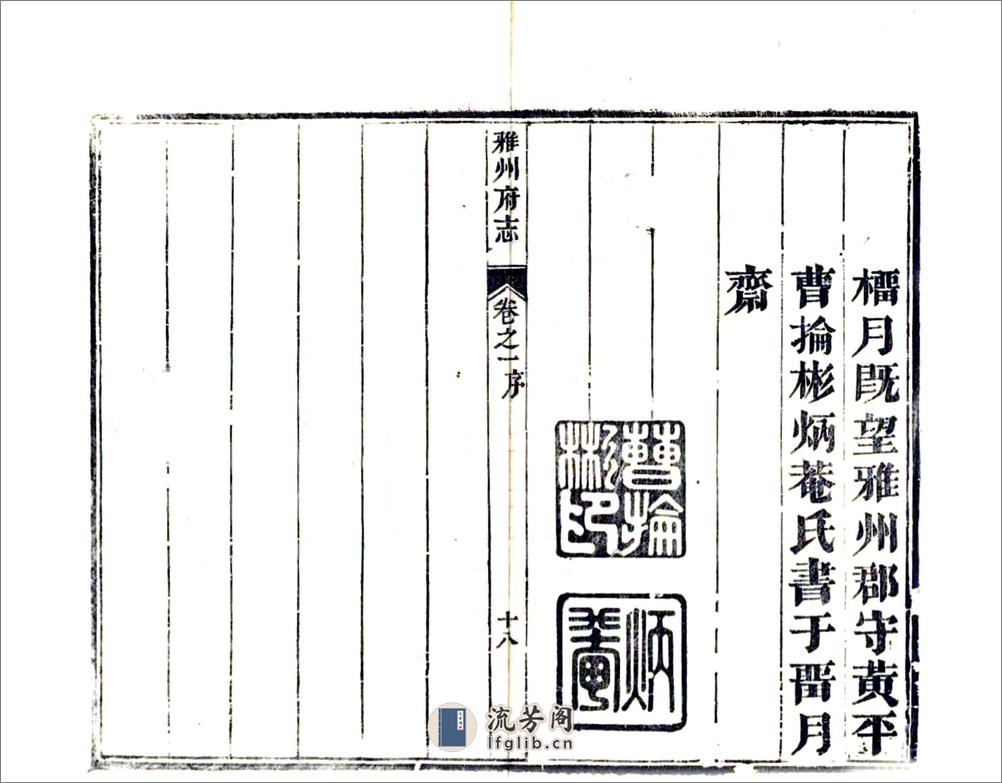 橊月既望雅州郡守黄平
曹掄彬炳菴氏書于㬜月
齋
曹掄彬印
炳菴
雅州府志
卷之一序
十八
流芳阁
lfglib.cn